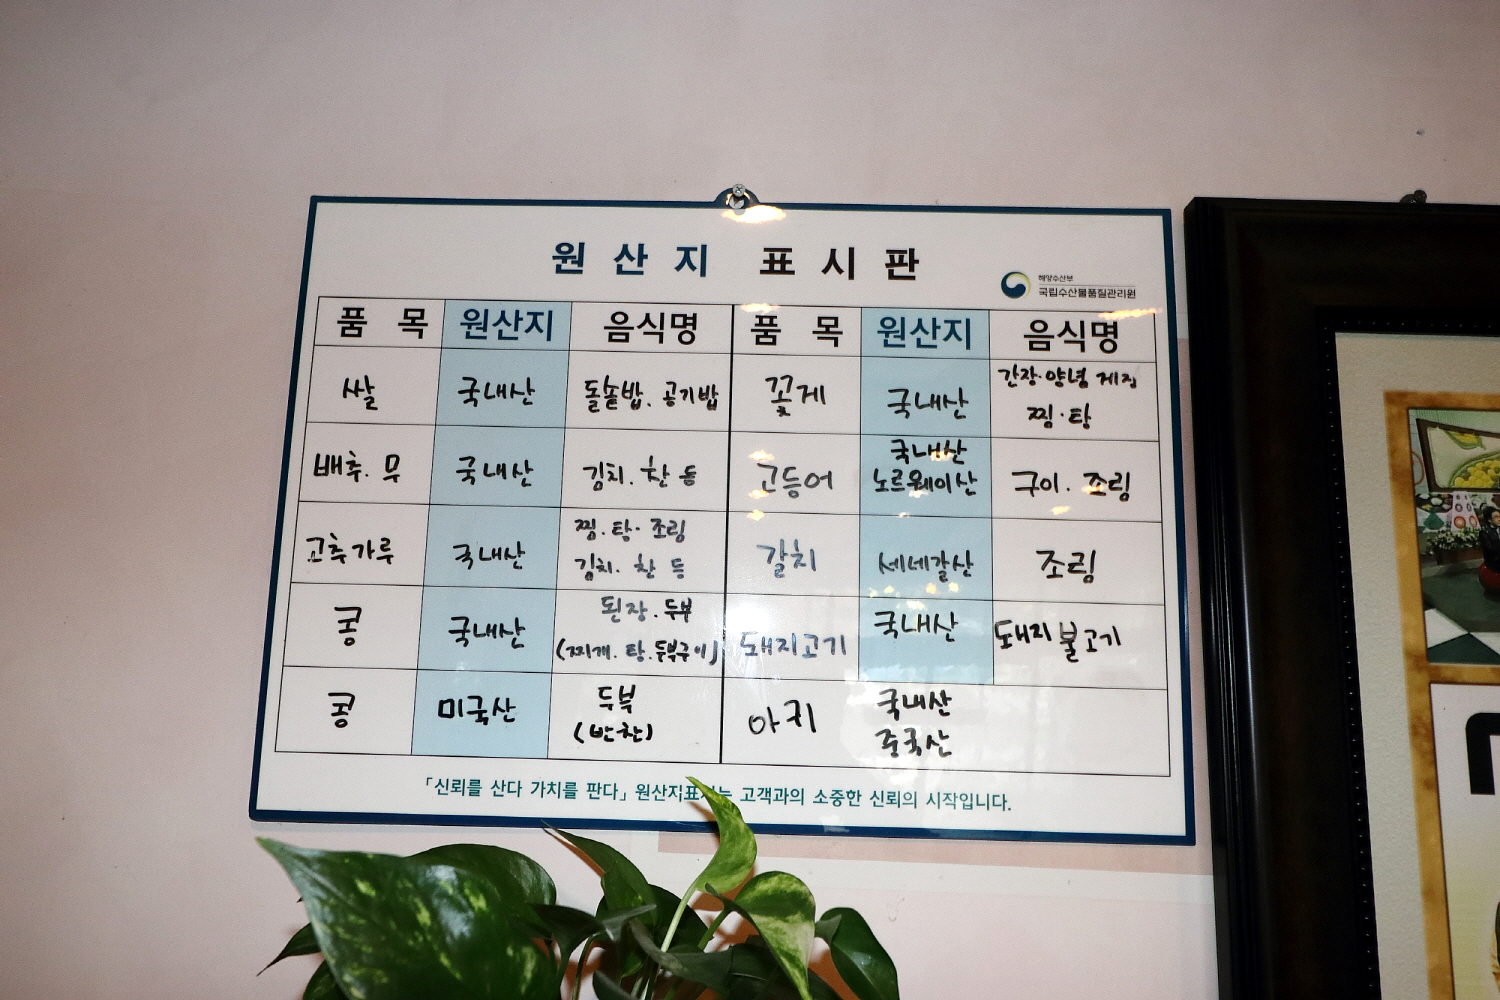 원산지 표시판
해양수산부
국립수산물품질관리원
품 목 원산지 음식명 품 목 원산지 음식명
쌀 국내산 돌솥밥. 공기밥
꽃게 국내산 간장·양념 게장
찜·탕
배추. 무 국내산 김치. 찬 등
고등어 국내산
노르웨이산 구이. 조림
고추가루 국내산 찜·탕·조림
김치. 찬 등
갈치 세네갈산 조림
콩 국내산 된장. 두부
(찌개. 탕. 두부구이)
돼지고기 국내산 돼지불고기
콩 미국산 두부
(반찬)
아귀 국내산
중국산
「신뢰를 산다 가치를 판다」 원산지표시는 고객과의 소중한 신뢰의 시작입니다.